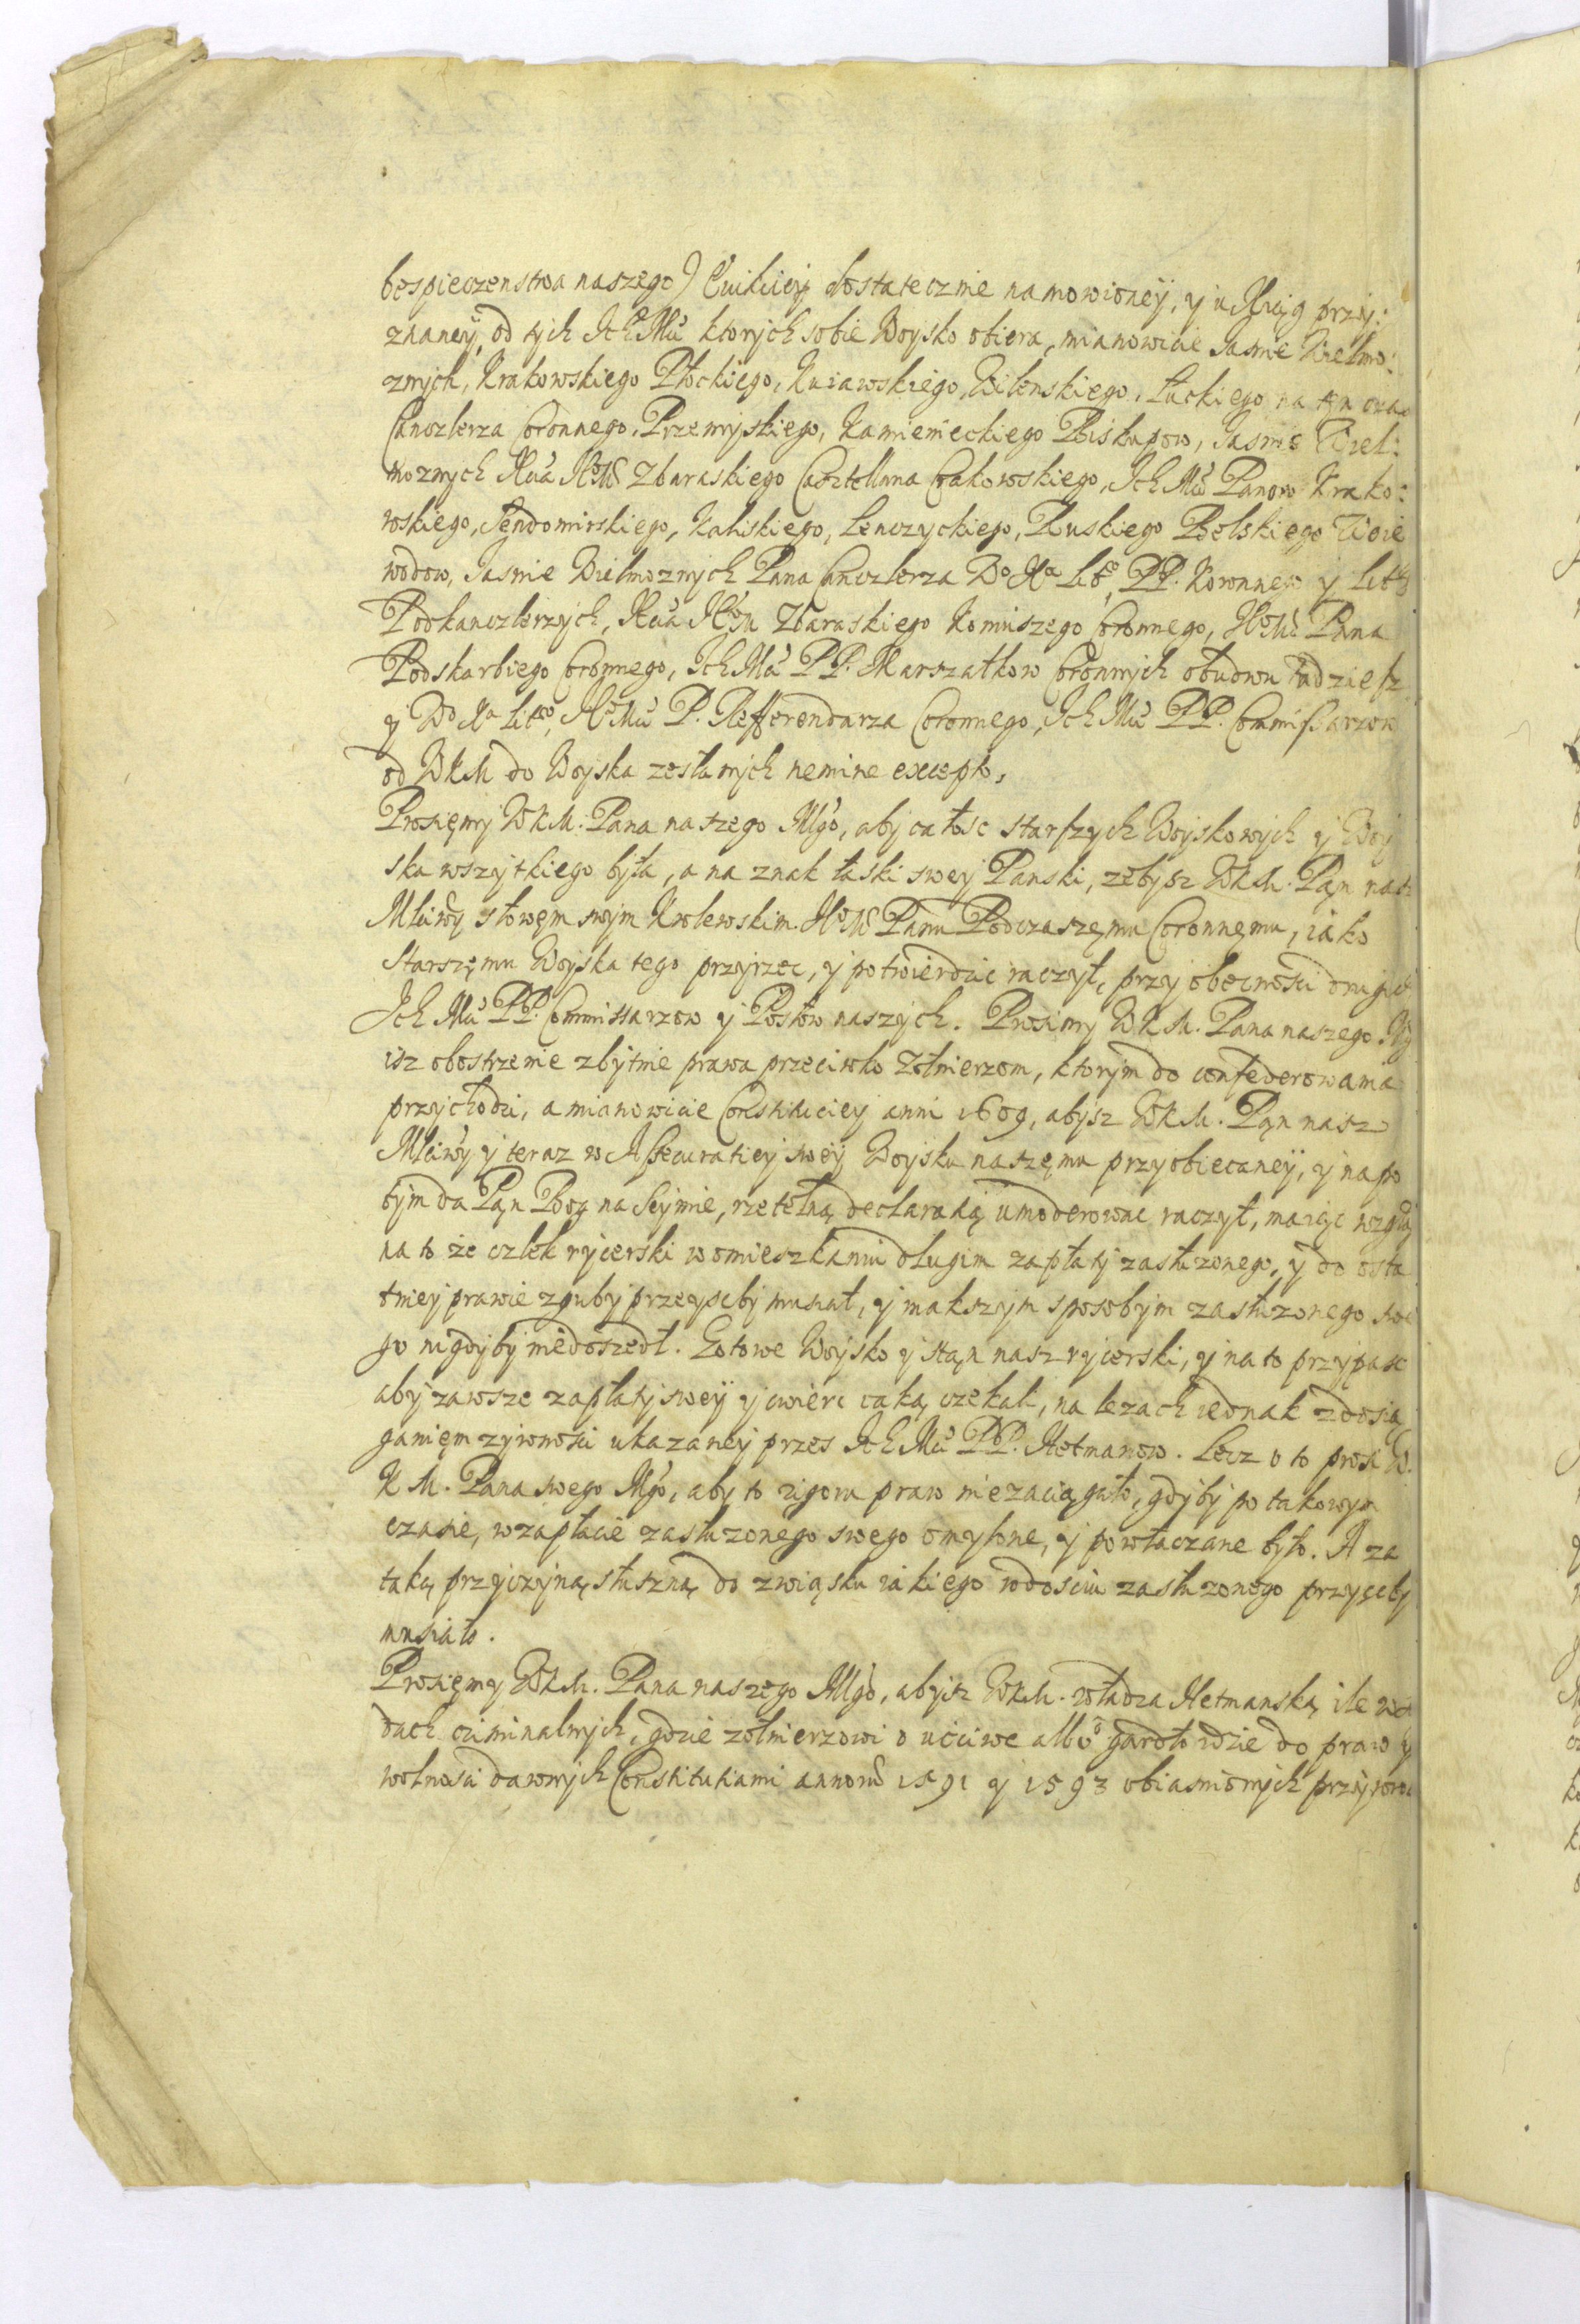 bespieczenstwa naszego) Ewikciey dostatecznie namowioney, y u Xiąg przy:
znaney, od tych Ich Mci ktorych sobie Woysko obiera, mianowicie Jasnie Wielmo:
znych, Krakowskiego Płockiego, Kuiawskiego, Wilenskiego, Łuckiego na ten czas
Canczlerza Coronnego, Przemyskiego, Kamienieckiego Biskupow, Jasnie Wiel:
moznych Xcia Je° Mci Zbaraskiego Casztellana Crakowskiego, Ich Mci Panow Krako:
wskiego, Sendomirskiego, Kaliskiego, Lenczyckiego, Ruskiego Belskiego Woie
wodow, Jasnie Wielmoznych Pana Canczlerza W° Xa Lit°, PP. Koronne° y Lit°
Podkanczlerzych, Xcia Je° M Zbaraskiego Koniuszego Coronnego, Je° Mci Pana
Podskarbiego Coronnego, Ich Mci PP. Marszałkow Coronnych obudwu tudziesz
y W° Xa Lit°, Je° Mci P. Refferendarza Coronnego, Ich Mci PP. Commissarzow
od WKM do Woyska zesłanych nemine excepto,
Prosięmy W K M. Pana naszego Mgo, aby całosc starszych Woyskowych y Woy
ska wszytkiego była, a na znak łaski swey Panski, zebysz WKM. Pąn nasz
Mściwy słowęm swym Krolewskim Je° Mci Panu Podczaszęmu Coronnęmu, iako
Starszęmu Woyska tego przyrzec, y potwierdzic raczył, przy obecnosci drugich
Ich Mci PP. Commissarzow y Posłow naszych. Prosimy W K M. Pana naszego Mg
isz obostrzenie zbytnie prawa przeciwko Zołnierzom, ktorym do confederowania
przychodzi, a mianowicie Constituciey anni 1609, abysz WKM. Pąn nasz
Mściwy y teraz w Assecuratiey swey Woysku naszęmu przyobiecaney, y napo
tym da Pąn Bog na Seymie, rzetelną declaratią umoderowac raczył, maiąc wzgląd
na to że człek rycerski w omieszkaniu długim zapłaty zasłuzonego, y do osta
tniey prawie zguby przeyscby musiał, y inakszym sposobym zasłuzonego swe
go nigdyby niedoszedł. Gotowe Woysko y stąn nasz rycerski, y na to przypasc
aby zawsze zapłaty swey y cwierc całą czekali, na lezach iednak z dosią
ganięm zywnosci ukazaney przes Ich Mci PP. Hetmanow. Lecz o to prosi W.
K M. Pana swego Mgo, aby to rigoru praw niezaciągało, gdyby po takowym
czasie, w zapłacie zasłuzonego swego omylone, y powłaczane było. A za
taką przyczyną słuszną do związku iakiego w dosciu zasłuzonego przyscby
musiało.
Prosięmy WKM. Pana naszego Mgo, abysz WKM. władza Hetmanską ile w są
dach criminalnych, gdzie zołnierzowi o ucciwe albo gardło idzie do praw y
wolnosci dawnych Constitutiami annorum 1591 y 1593 obiasnionych przywroc